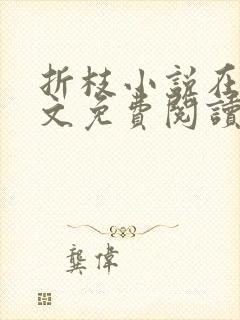 折枝小说在
文免費閱讀
龔偉